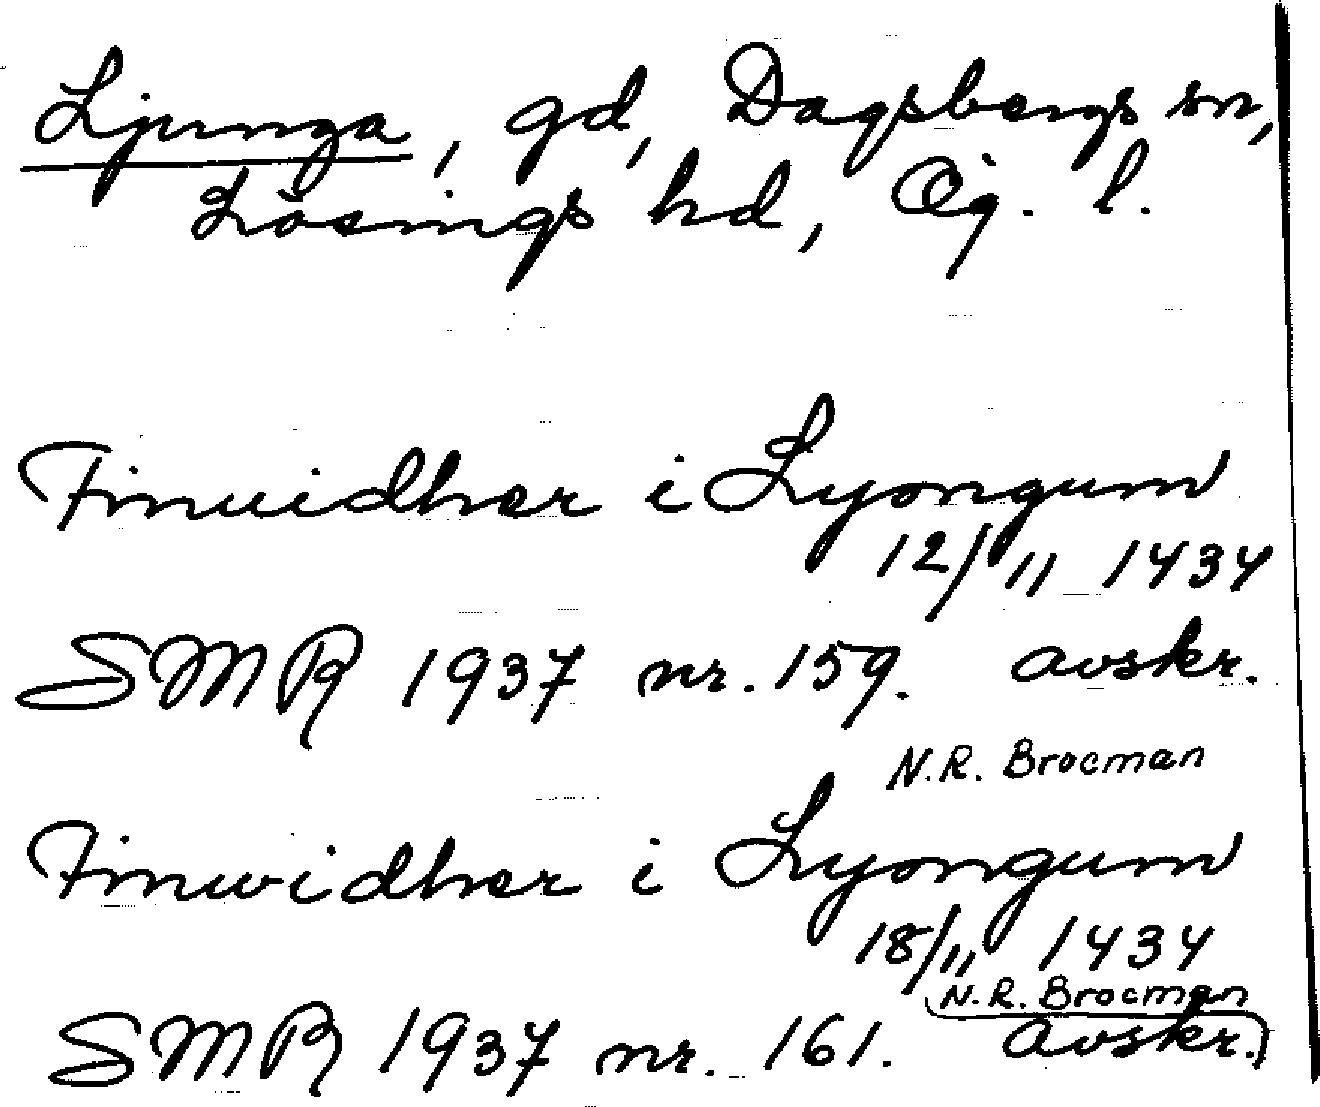 Ljunga, gd, Dagsbergs sn,
Lösings hd, Ög. l.
Finuidher i Lyongum
12/11 1434
SMR 1937 nr. 159. avskr.
N.R. Brocman
Finwidher i Lyongum
18/11 1434
N.R. Brocman
SMR 1937 nr. 161. avskr.